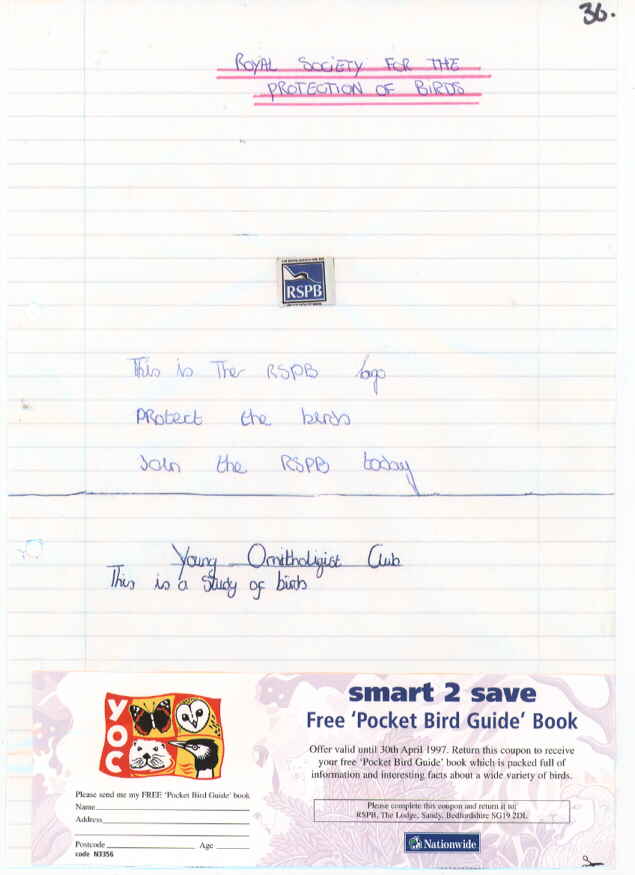 36.
ROYAL SOCIETY FOR THE
PROTECTION OF BIRDS
RSPB
This is The RSPB logo
PRotect the birds
Join the RSPB today
Young Ornithologist Club
This is a Study of birds
yoc
smart 2 save
Free 'Pocket Bird Guide' Book
Offer valid until 30th April 1997. Return this coupon to receive
your free 'Pocket Bird Guide' book which is packed full of
information and interesting facts about a wide variety of birds.
Please send me my FREE 'Pocket Bird Guide' book
Name
Address
Postcode Age
code N3356
Please complete this coupon and return it to:
RSPB, The Lodge, Sandy, Bedfordshire SG19 2DL
Nationwide